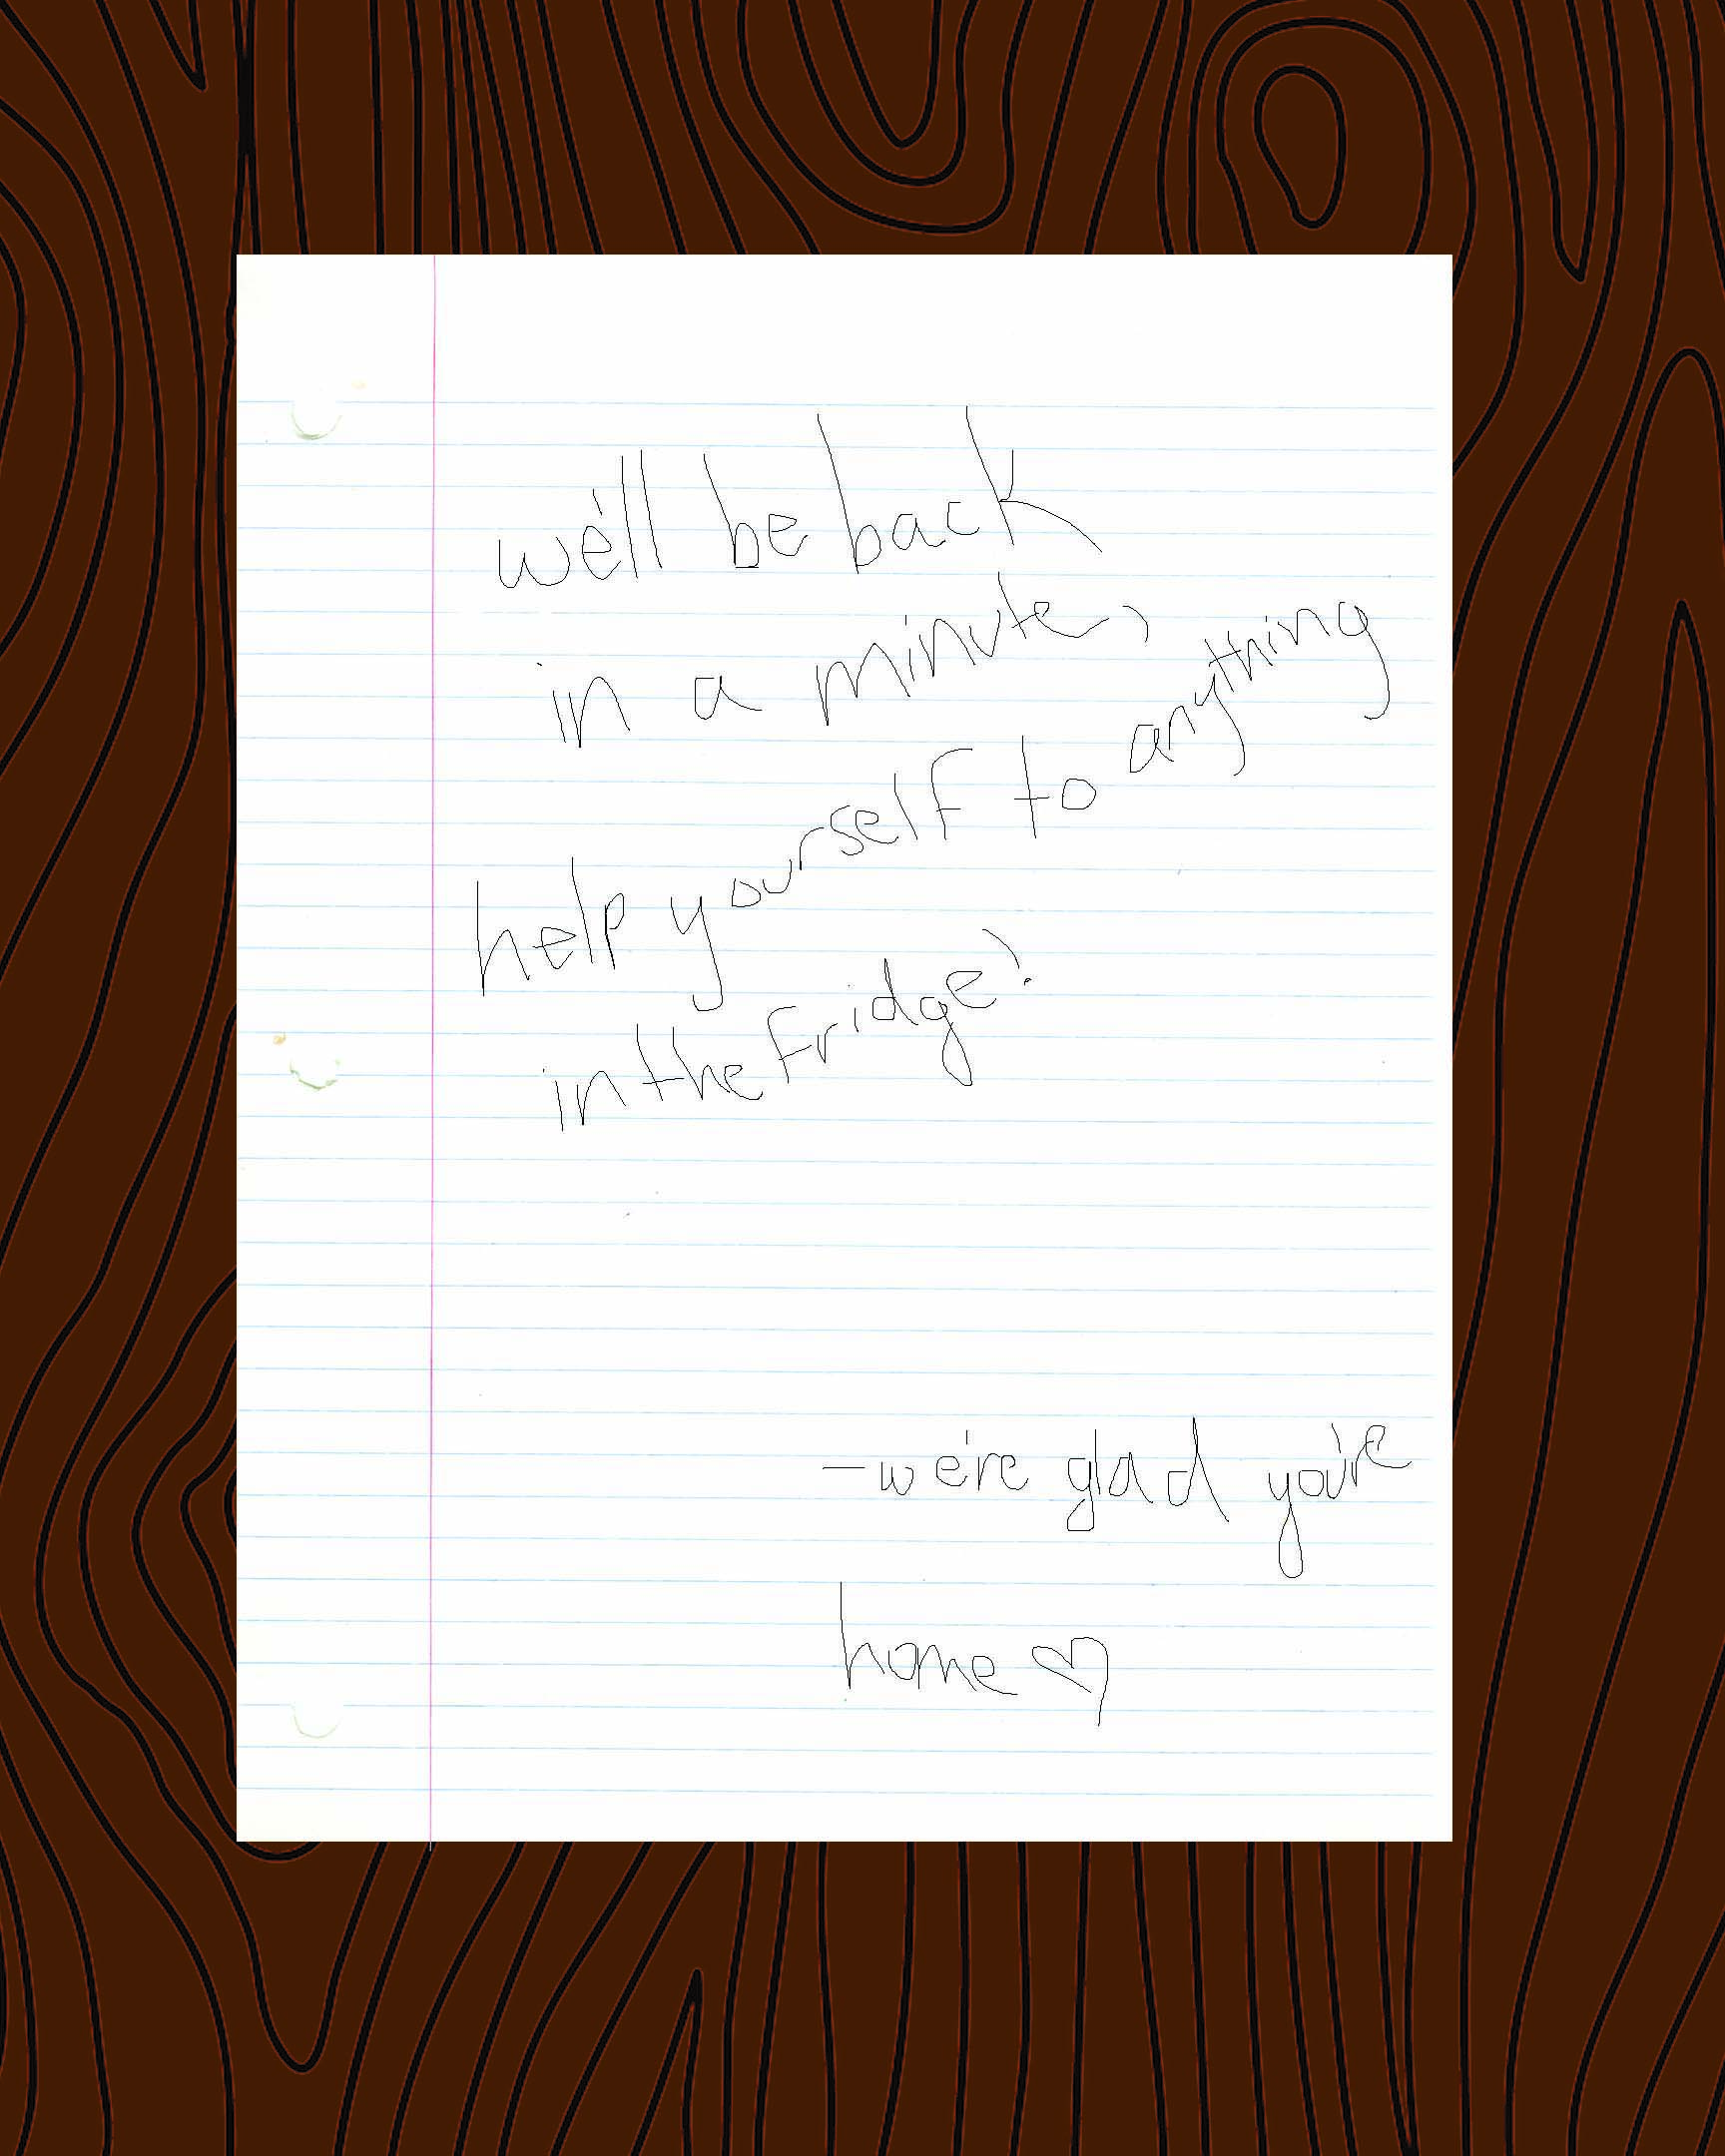 we'll be back
in a minute,
help yourself to anything
in the fridge!
-we're glad you're
home ♡